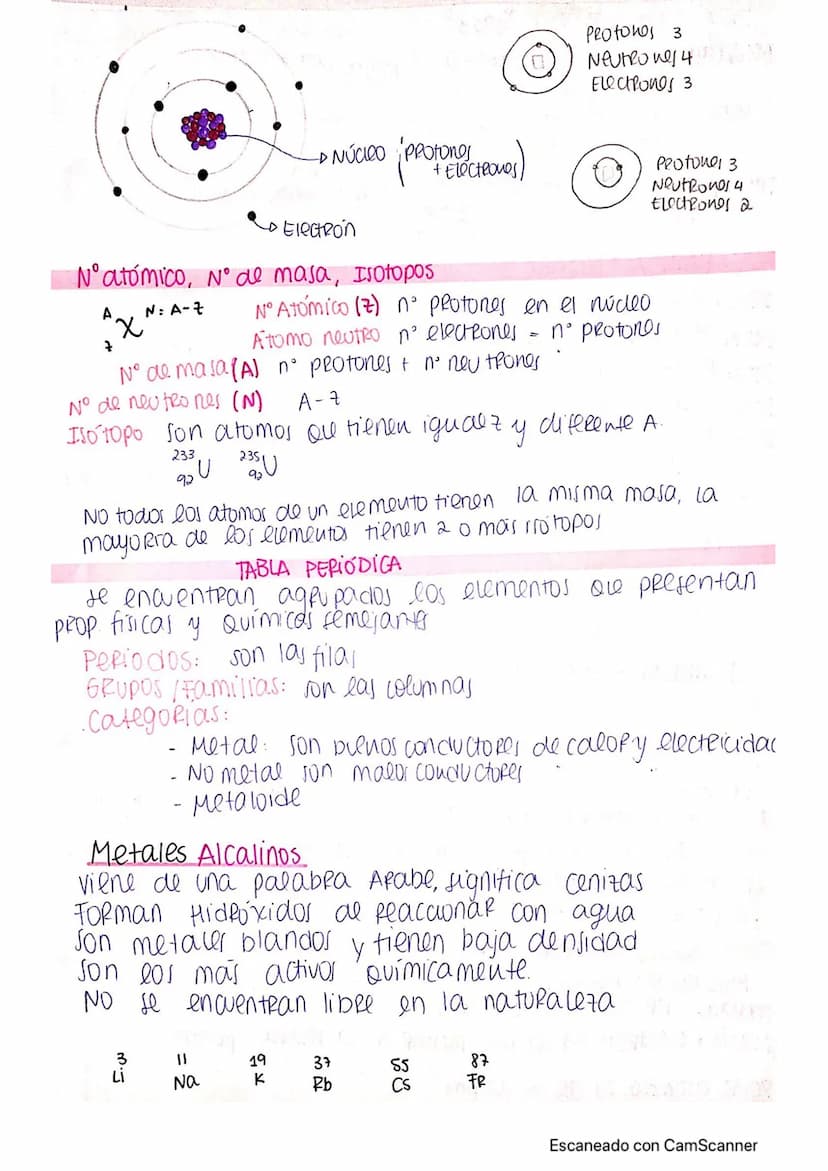 Protones 3
Neutrones 4
Electrones 3
Núcleo (Protones
+ Electrones)
Protones 3
Neutrones 4
Electrones 2
Electrón
Nº atómico, Nº de masa, Isotopos
A
X N = A - Z
Z
Nº Atómico (Z) nº protones en el núcleo
Átomo neutro nº electrones = nº protones
Nº de masa (A) nº protones + nº neutrones
Nº de neutrones (N) A - Z
Isótopo son atomos que tienen igual Z y diferente A.
233 235
U U
92 92
No todos los atomos de un elemento tienen la misma masa, la
mayoria de los elementos tienen 2 o mas isotopos
TABLA PERIÓDICA
se encuentran agrupados los elementos que presentan
prop. físicas y químicas semejantes
Periodos: son las filas
Grupos / Familias: son las columnas
Categorias:
- Metal: son buenos conductores de calor y electricidad
- No metal son malos conductores
- Metaloide
Metales Alcalinos
viene de una palabra Arabe, significa cenizas
Forman Hidróxidos al reaccionar con agua
son metales blandos y tienen baja densidad
son los mas activos químicamente.
No se encuentran libre en la naturaleza
3 11 19 37 55 87
Li Na K Rb Cs FR
Escaneado con CamScanner